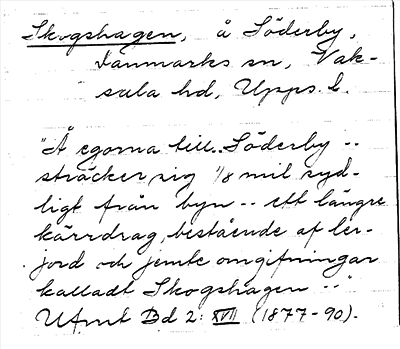 Skogshagen, å Söderby,
Danmarks sn, Vak-
sala hd, Upps. l.
"Å egorna till.. Söderby ..
sträcker sig 1/8 mil syd-
ligt från byn -- ett längre
kärrdrag, bestående af ler-
jord och jemte omgifningar
kalladt Skogshagen --"
UAmt Bd 2: XVII (1877-90).